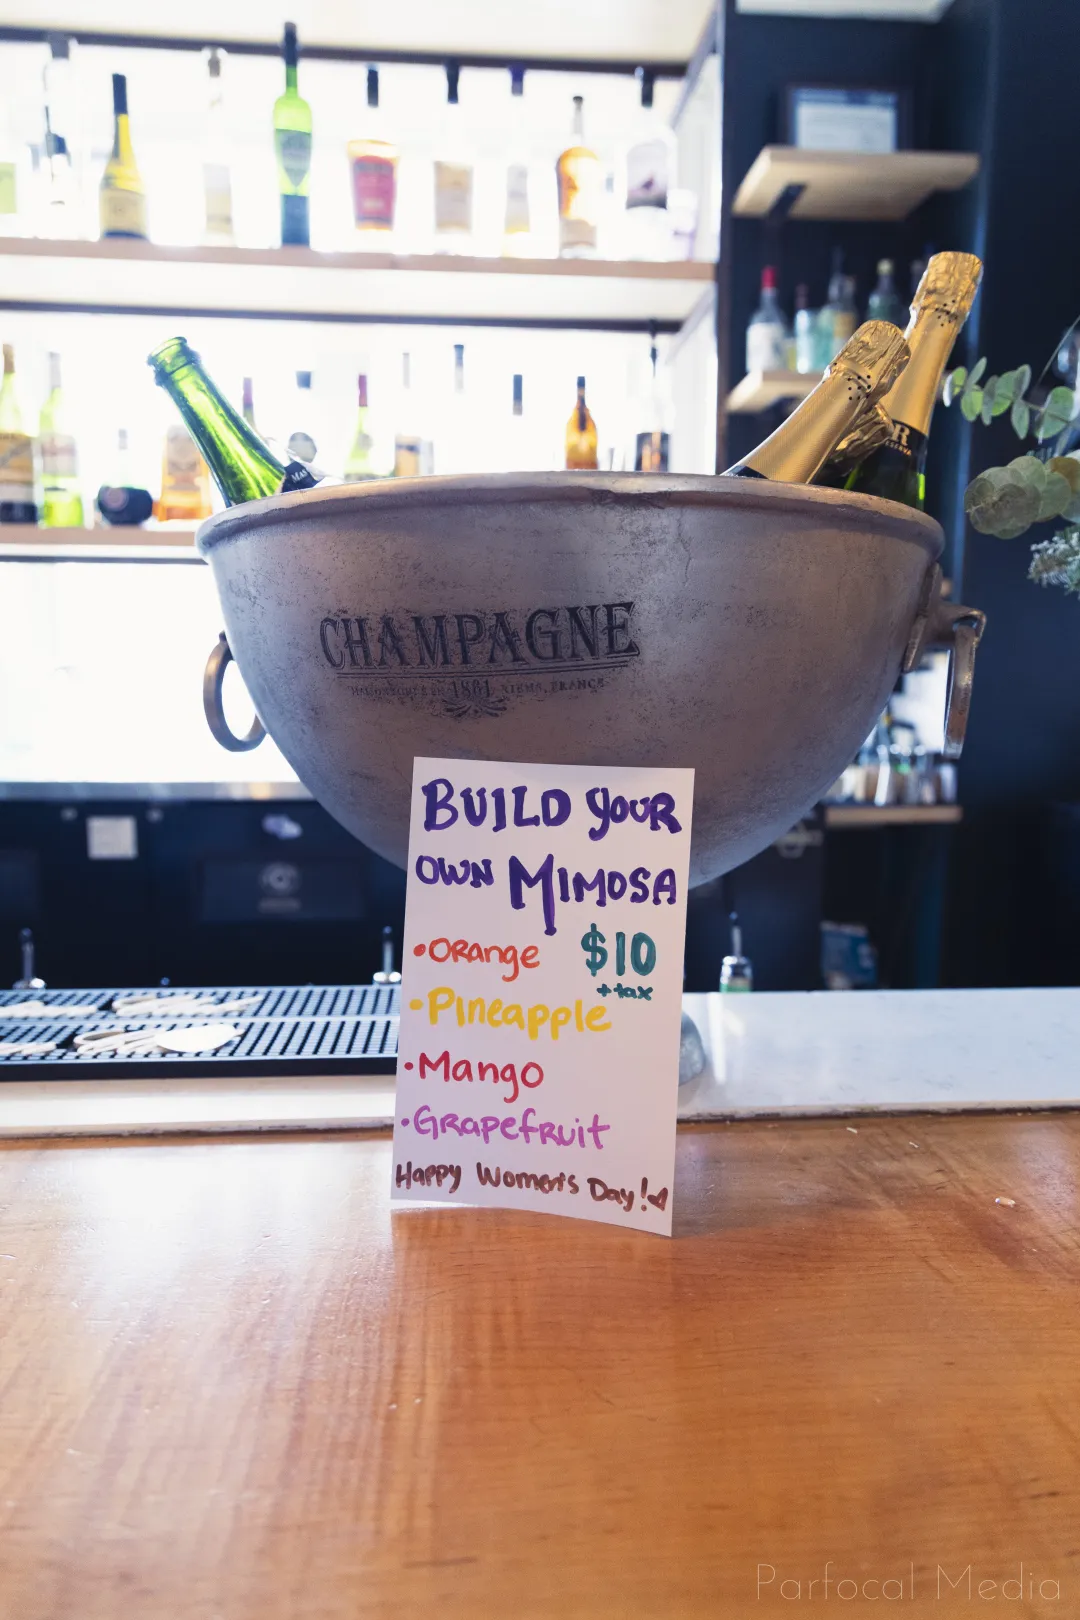 R
CHAMPAGNE
1801 FRANCE
BUILD your
own MIMOSA
•Orange $10
+tax
•Pineapple
•Mango
•Grapefruit
Happy Women's Day!
Parfocal Media